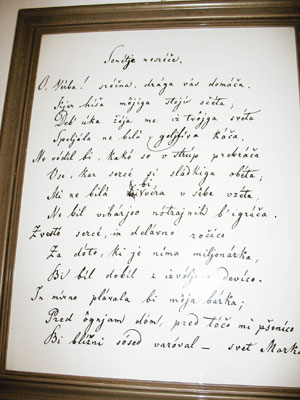 Sonétje nesreče.
O Vérba! srečna, draga vás domáča,
Kjer hiša mójiga stojí očéta;
Deb' úka žéja me iz tvójga svéta
Speljála ne bilà, goljfíva káča,
Ne védil bi, kakó se v strup prebráča
Vse, kar sercé si sládkiga obéta;
Mi ne bilà bi vera v sebe vzéta,
Ne bil vihárjov nótrajnih b' igráča.
Zvestó sercé, in délavno ročíco
Za dóto, ki je nima miljonárka,
Bi bil dobíl z izvóljeno devíco.
In mírno plávala bi mója bárka;
Pred ôgnjam dóm, pred tóčo mi pšenico
Bi bližni sósed varóval – svet Marka